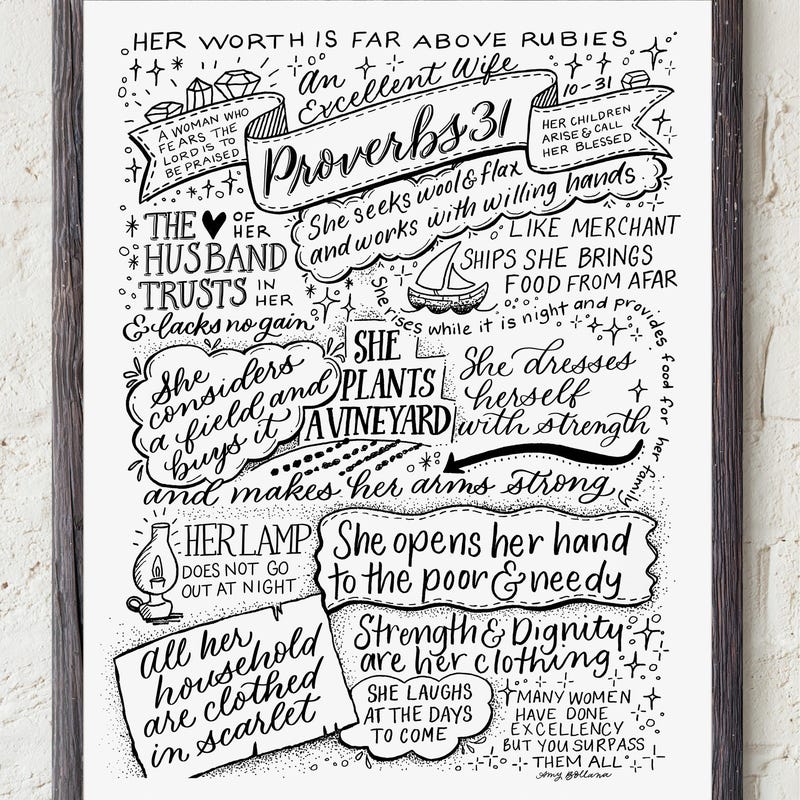 HER WORTH IS FAR ABOVE RUBIES
An
Excellent Wife
Proverbs 31
10-31
A WOMAN WHO
FEARS THE
LORD IS TO
BE PRAISED
HER CHILDREN
ARISE & CALL
HER BLESSED
She seeks wool & flax
and works with willing hands
THE ♥ OF HER
HUSBAND
TRUSTS IN HER
& lacks no gain
LIKE MERCHANT
SHIPS SHE BRINGS
FOOD FROM AFAR
She rises while it is night and provides food for her family
She
considers
a field and
buys it
SHE
PLANTS
A VINEYARD
She dresses
herself
with strength
and makes her arms strong
HER LAMP
DOES NOT GO
OUT AT NIGHT
She opens her hand
to the poor & needy
All her
household
are clothed
in scarlet
Strength & Dignity
are her clothing
SHE LAUGHS
AT THE DAYS
TO COME
MANY WOMEN
HAVE DONE
EXCELLENCY
BUT YOU SURPASS
THEM ALL
Amy Bollana